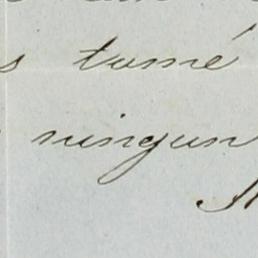 s tomé
ningun